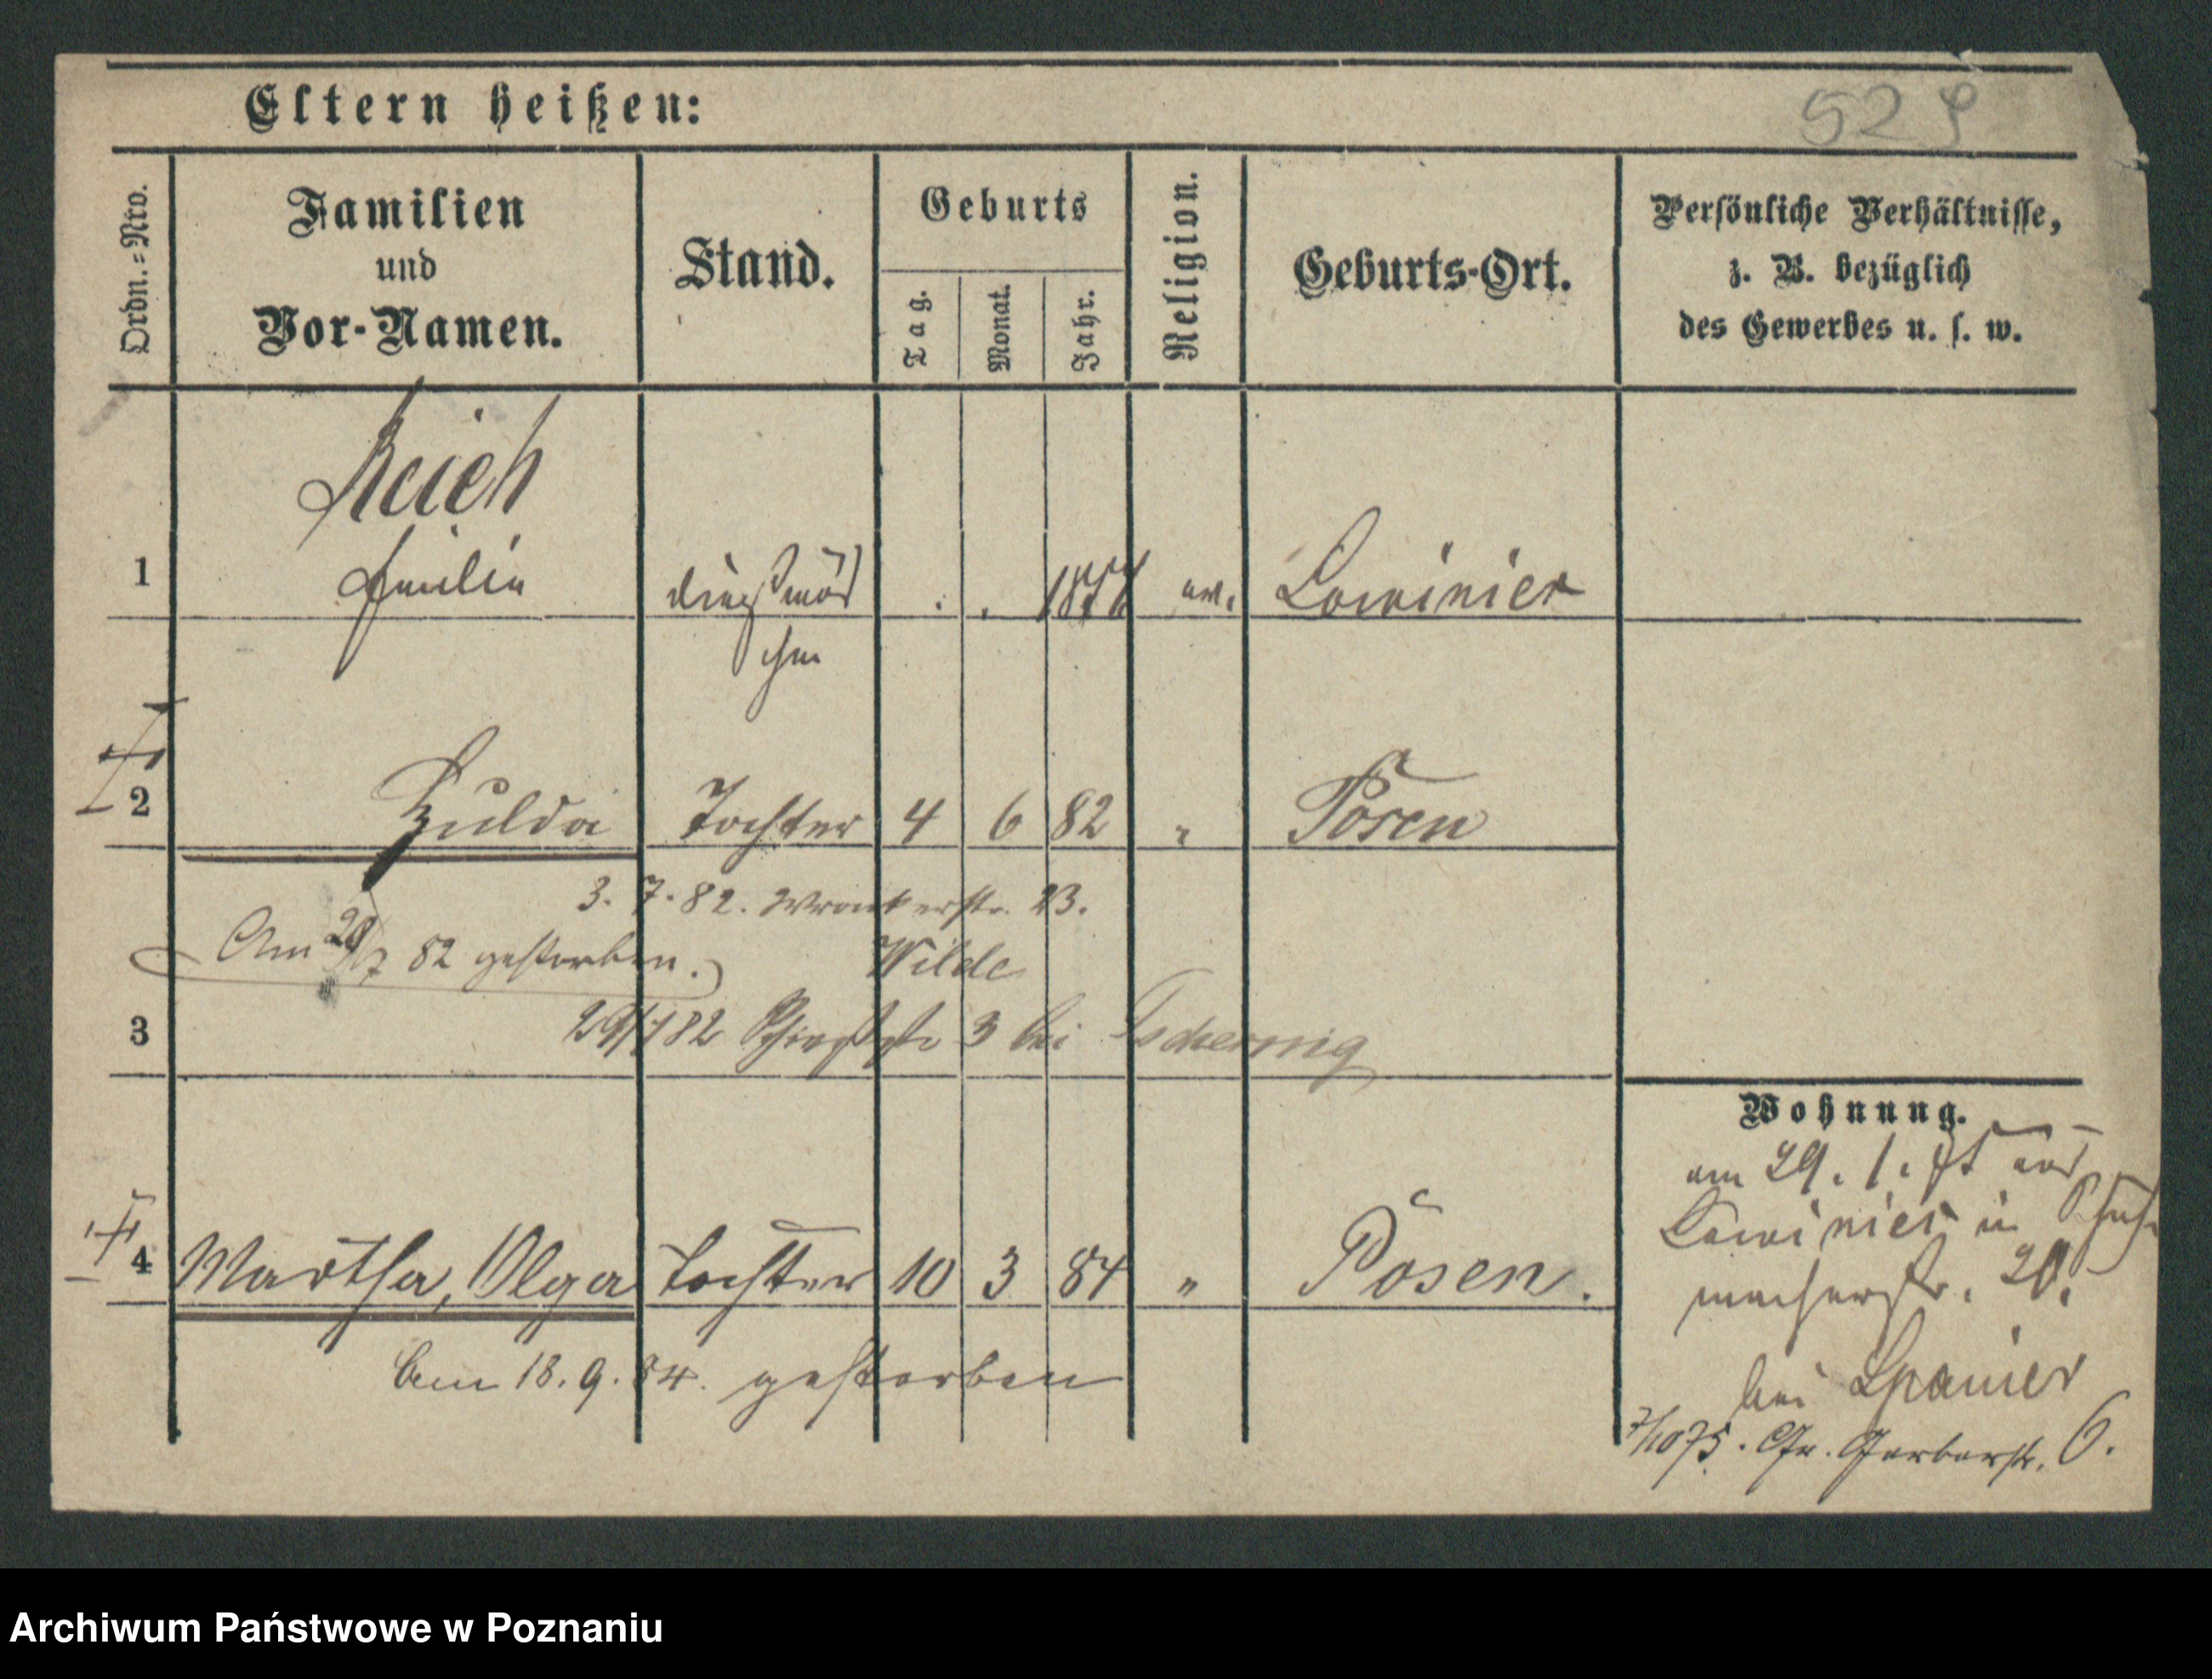 529
Eltern heißen:
Ordn.=Nro.
Familien
und
Vor-Namen.
Stand.
Geburts
Tag.
Monat.
Jahr.
Religion.
Geburts-Ort.
Persönliche Verhältnisse,
z. B. bezüglich
des Gewerbes u. s. w.
Reich
1 Emilie Dienstmäd ev. Lowinier
chen
2 Hulda Tochter 4 6 82 " Posen
3. 7. 82. Wronkerstr. 23.
Am 29/7 82 gestorben.
Wilde
3 29/7 82 3 bei Tschernig
4 Martha, Olga Tochter 10 3 84 " Posen.
Am 18. 9. 84. gestorben
Wohnung.
am 29. 1. aus
Lowinier in Schuh-
macherstr. 20.
bei Spanier
7/10 75. Gr. Gerberstr. 6.
Archiwum Państwowe w Poznaniu